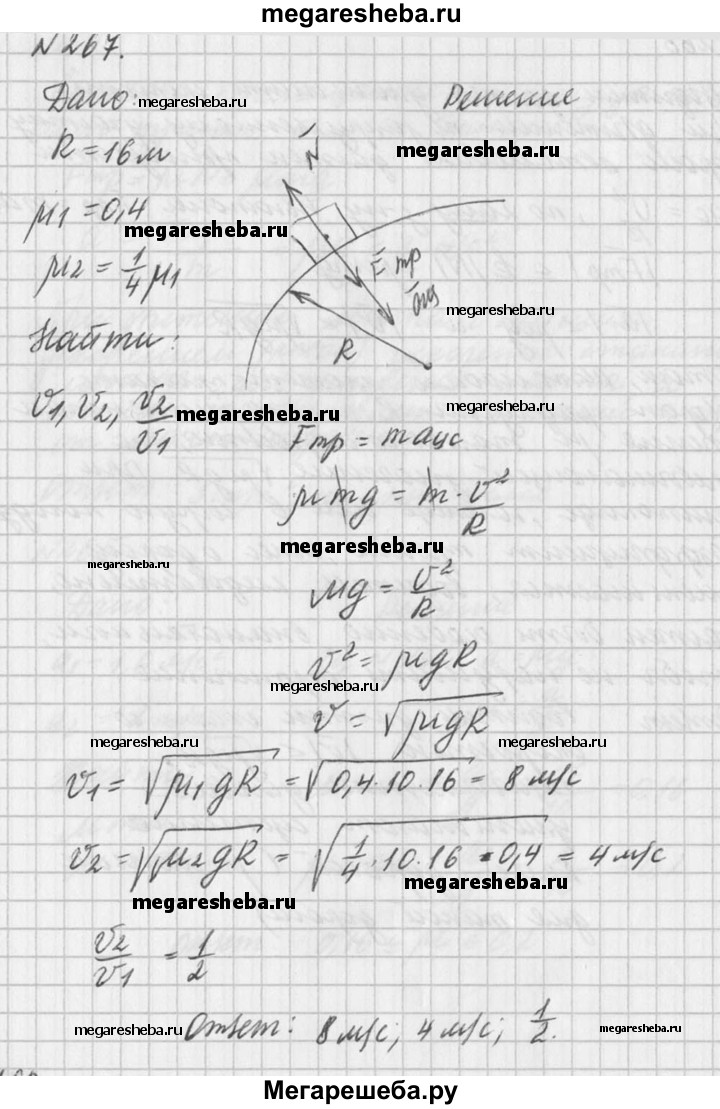 megaresheba.ru
N 267.
Дано: megaresheba.ru Решение
R = 16 м N̄ megaresheba.ru
μ1 = 0,4 megaresheba.ru
μ2 = 1/4 μ1 F̄тр āцс megaresheba.ru
Найти: R
v1, v2, v2/v1 megaresheba.ru megaresheba.ru
Fтр = maцс
μmg = m · v²/R
megaresheba.ru megaresheba.ru
μg = v²/R
v² = μgR
megaresheba.ru
v = √μgR
megaresheba.ru megaresheba.ru
v1 = √μ1gR = √0,4·10·16 = 8 м/с
v2 = √μ2gR = √1/4·10·16·0,4 = 4 м/с
megaresheba.ru megaresheba.ru
v2/v1 = 1/2
megaresheba.ru Ответ: 8 м/с; 4 м/с; 1/2. megaresheba.ru
Мегарешеба.ру